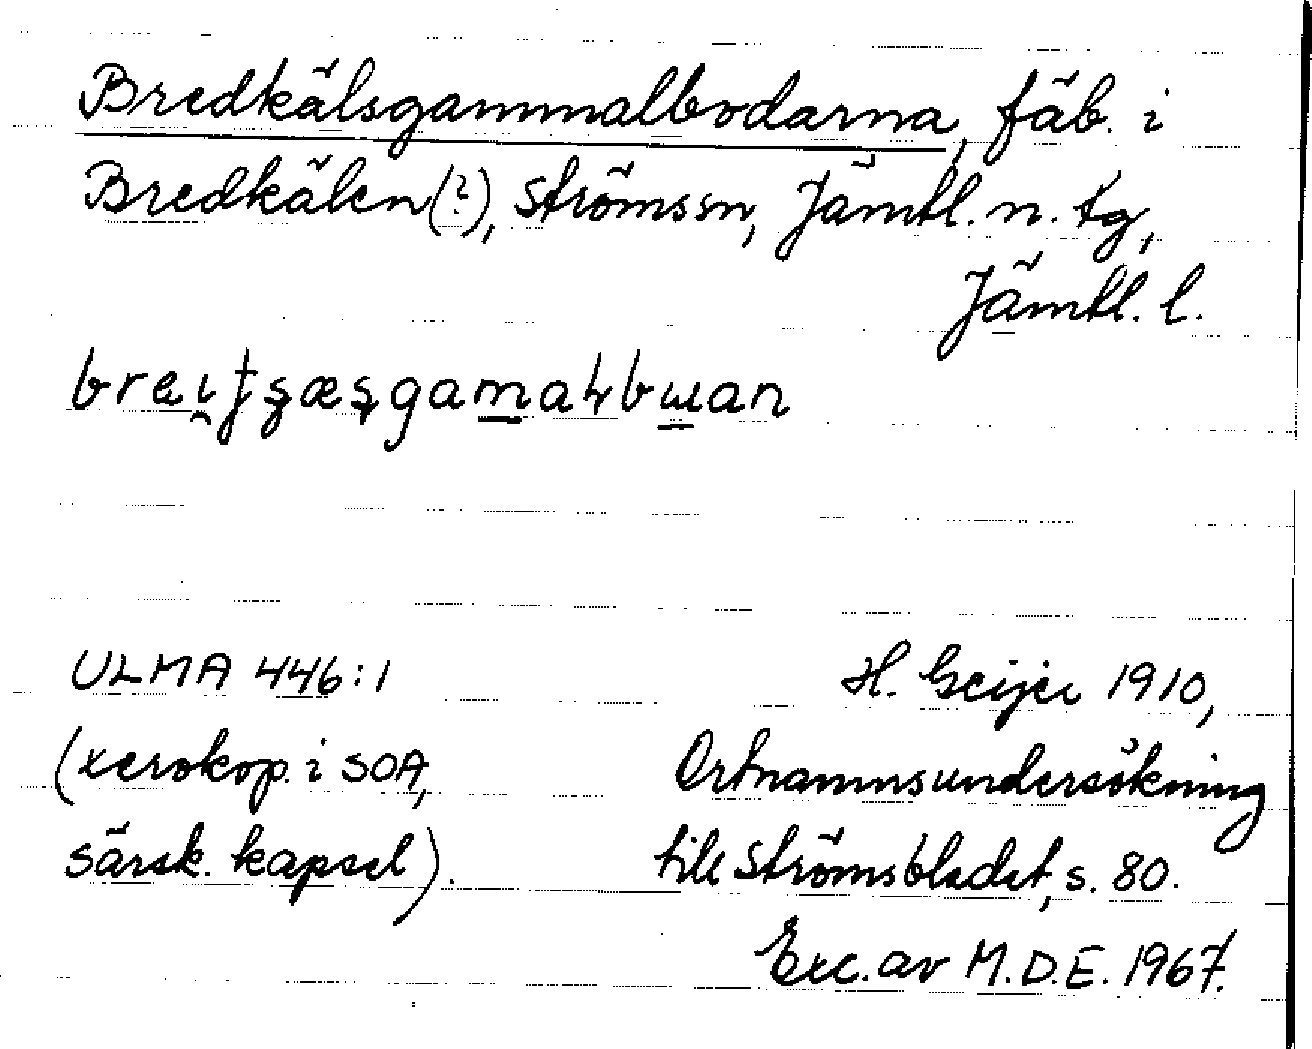 Bredkälsgammalbodarna, fäb. i
Bredkälen(?), Ströms sn, Jämtl. n. tg,
Jämtl. l.
ULMA 446:1
H. Geijer 1910,
(xerokop. i SOA,
Ortnamnsundersökning
särsk. kapsel).
till Strömsbladet, s. 80.
Exc. av M.D.E. 1967.